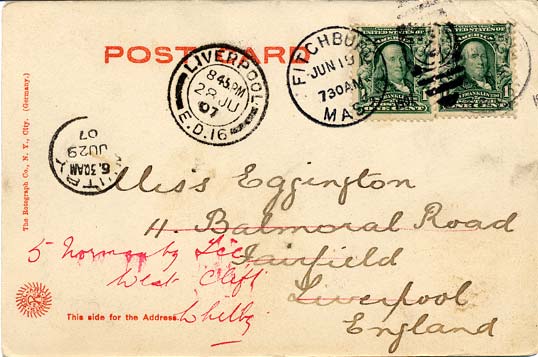 POST CARD
LIVERPOOL
8 45PM
28 JU
07
E.D.16
FITCHBUR
JUN 19
730AM
MAS
FRANKLIN
ONE CENT
FRANKLIN
6.30AM
JU29
07
The Rotograph Co., N. Y., City. (Germany.)
Miss Eggington
11. Balmoral Road
Fairfield
Liverpool
England
5 Normanby Tce
West Cliff
Whitby
This side for the Address.